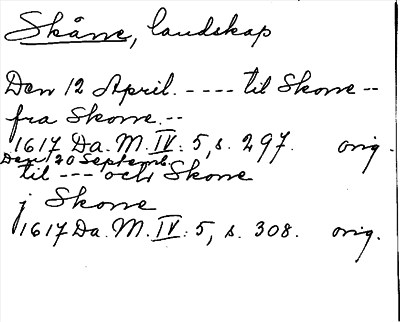 Skåne, landskap
Den 12 April. ---- til Skone --
fra Skone. --
1617 Da. M. IV: 5, s. 297. orig.
Den 20 Septemb.
til --- och Skone
j Skone
1617 Da. M. IV: 5, s. 308. orig.